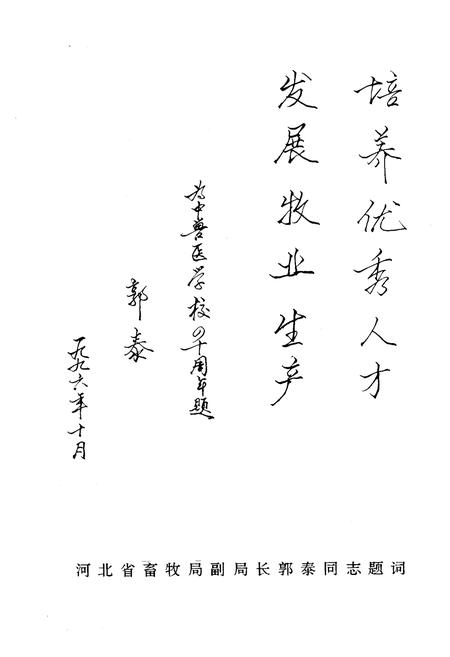 培养优秀人才
发展牧业生产
为中兽医学校四十周年题
郭泰
一九九六年十月
河北省畜牧局副局长郭泰同志题词